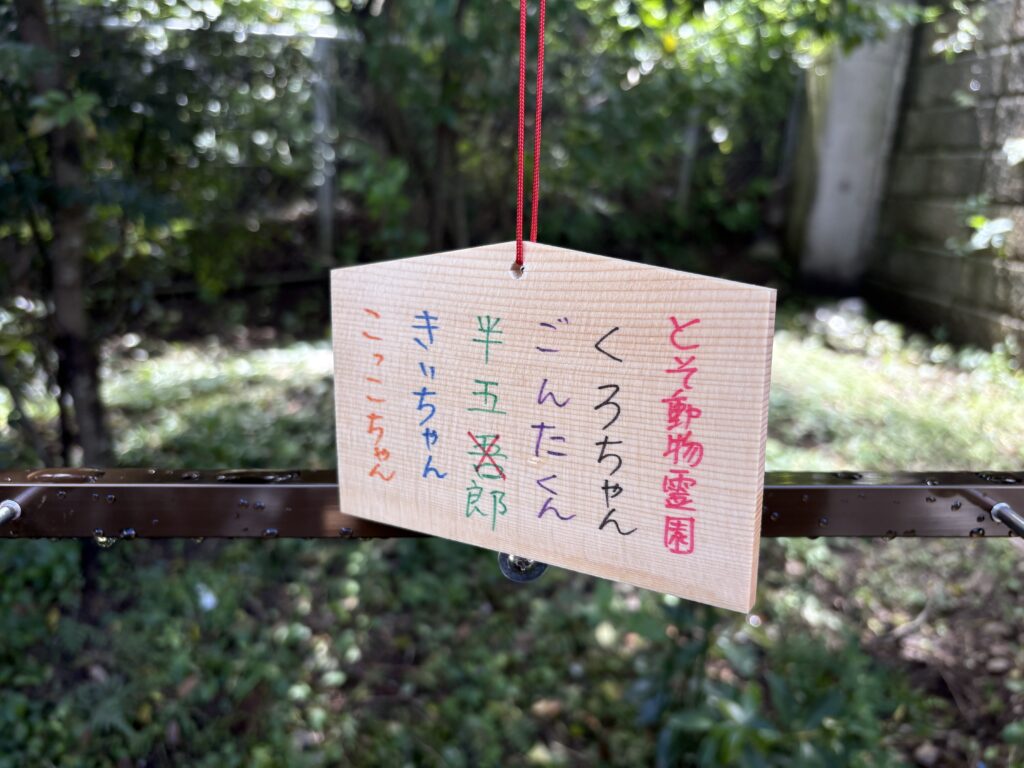 とそ動物霊園
くろちゃん
ごんたくん
半五郎
きぃちゃん
こっこちゃん